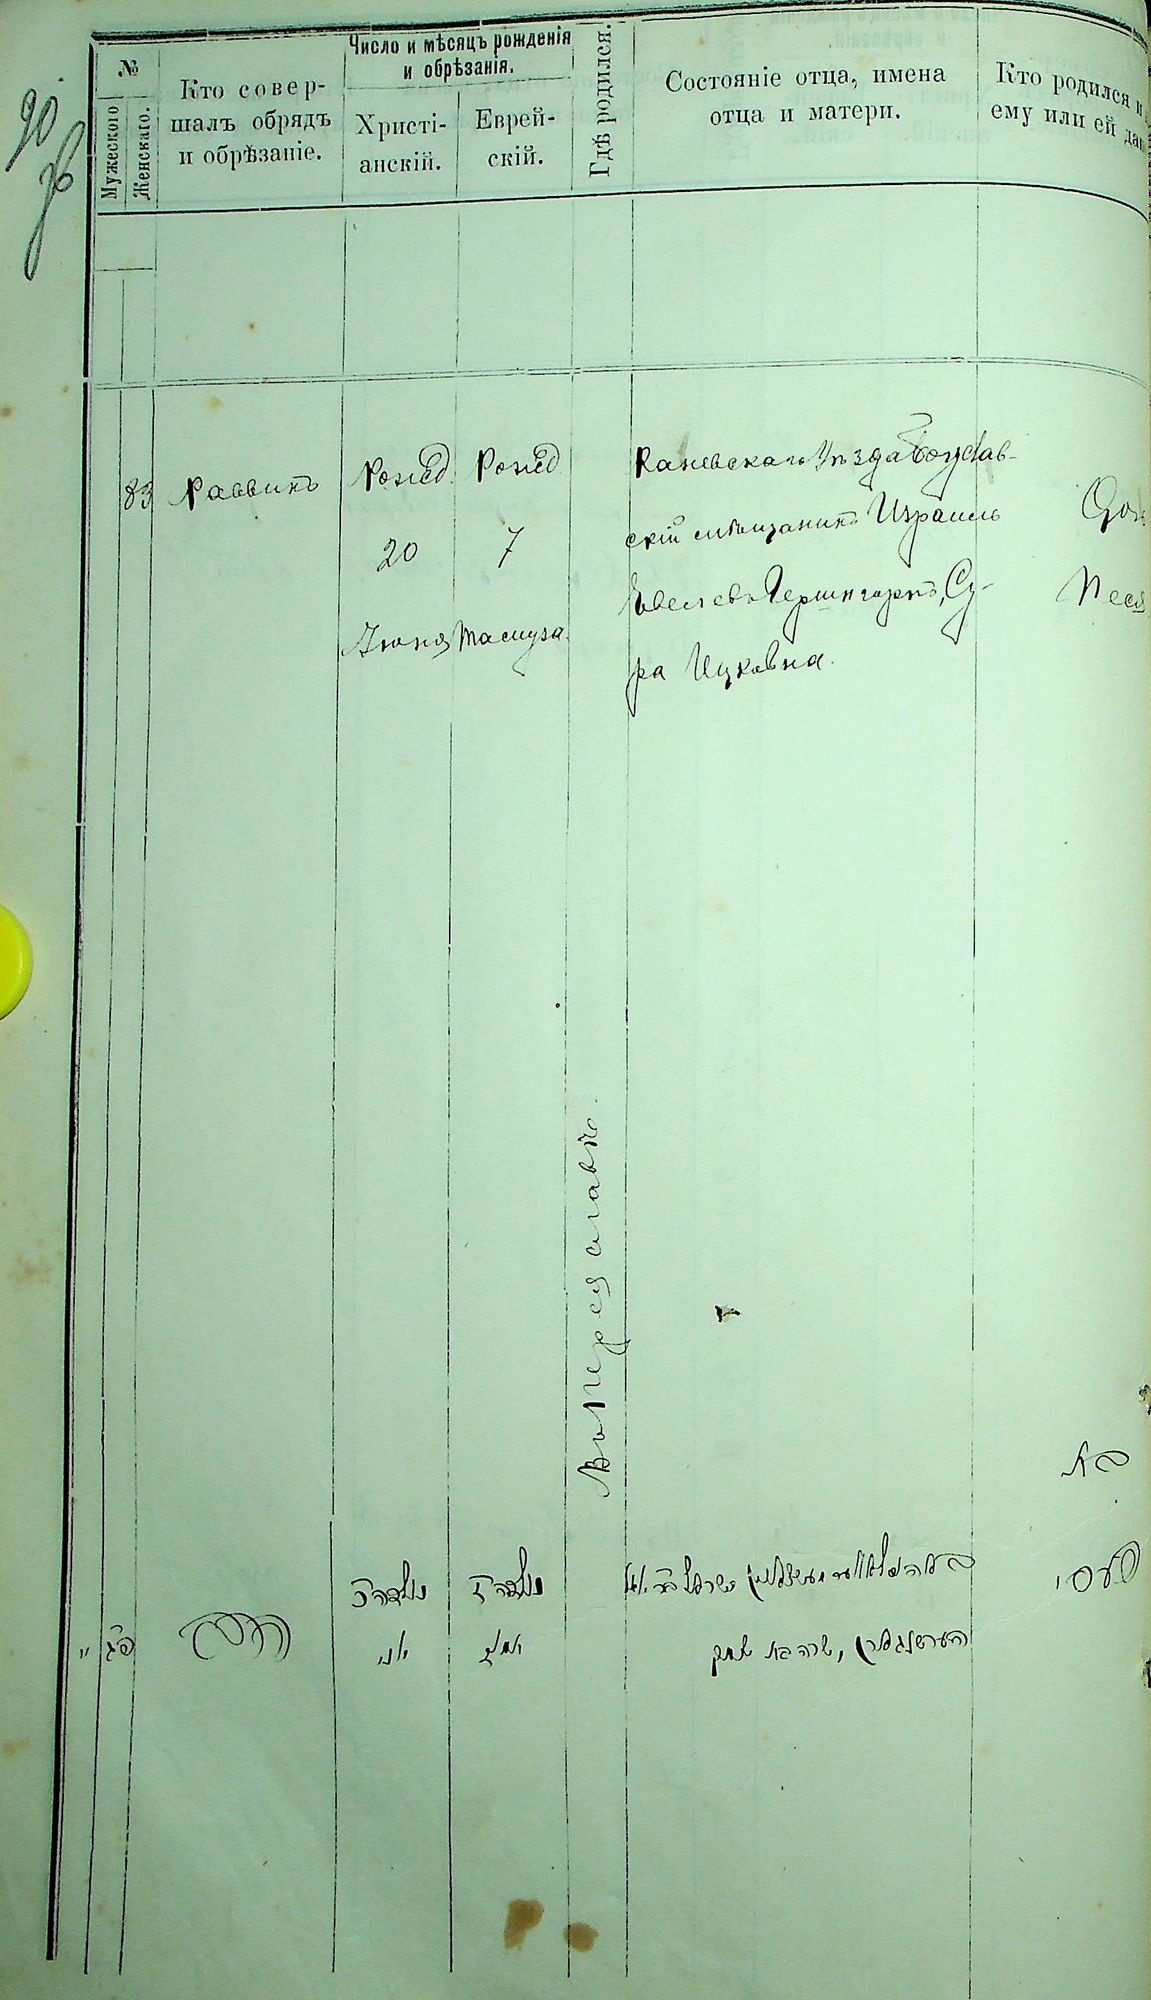 90
об
№
Мужескаго
Женскаго.
Кто совер-
шалъ обрядъ
и обрѣзаніе.
Число и мѣсяцъ рожденія
и обрѣзанія.
Христі-
анскій.
Еврей-
скій.
Гдѣ родился.
Состояніе отца, имена
отца и матери.
Кто родился и
ему или ей дан
83
Раввинъ
Рожд.
20
Іюня
Рожд
7
Тамуза.
Каневскаго Уѣзда Богуслав-
скій мѣщанинъ Израиль
Ювелевъ Гершнгорнъ, Су-
ра Ицковна.
Дочь
Песя
Въ Переяславѣ.
בת
פעסי
נולדה כ
יוני
נולדה ז
תמוז
שרה בת
פג